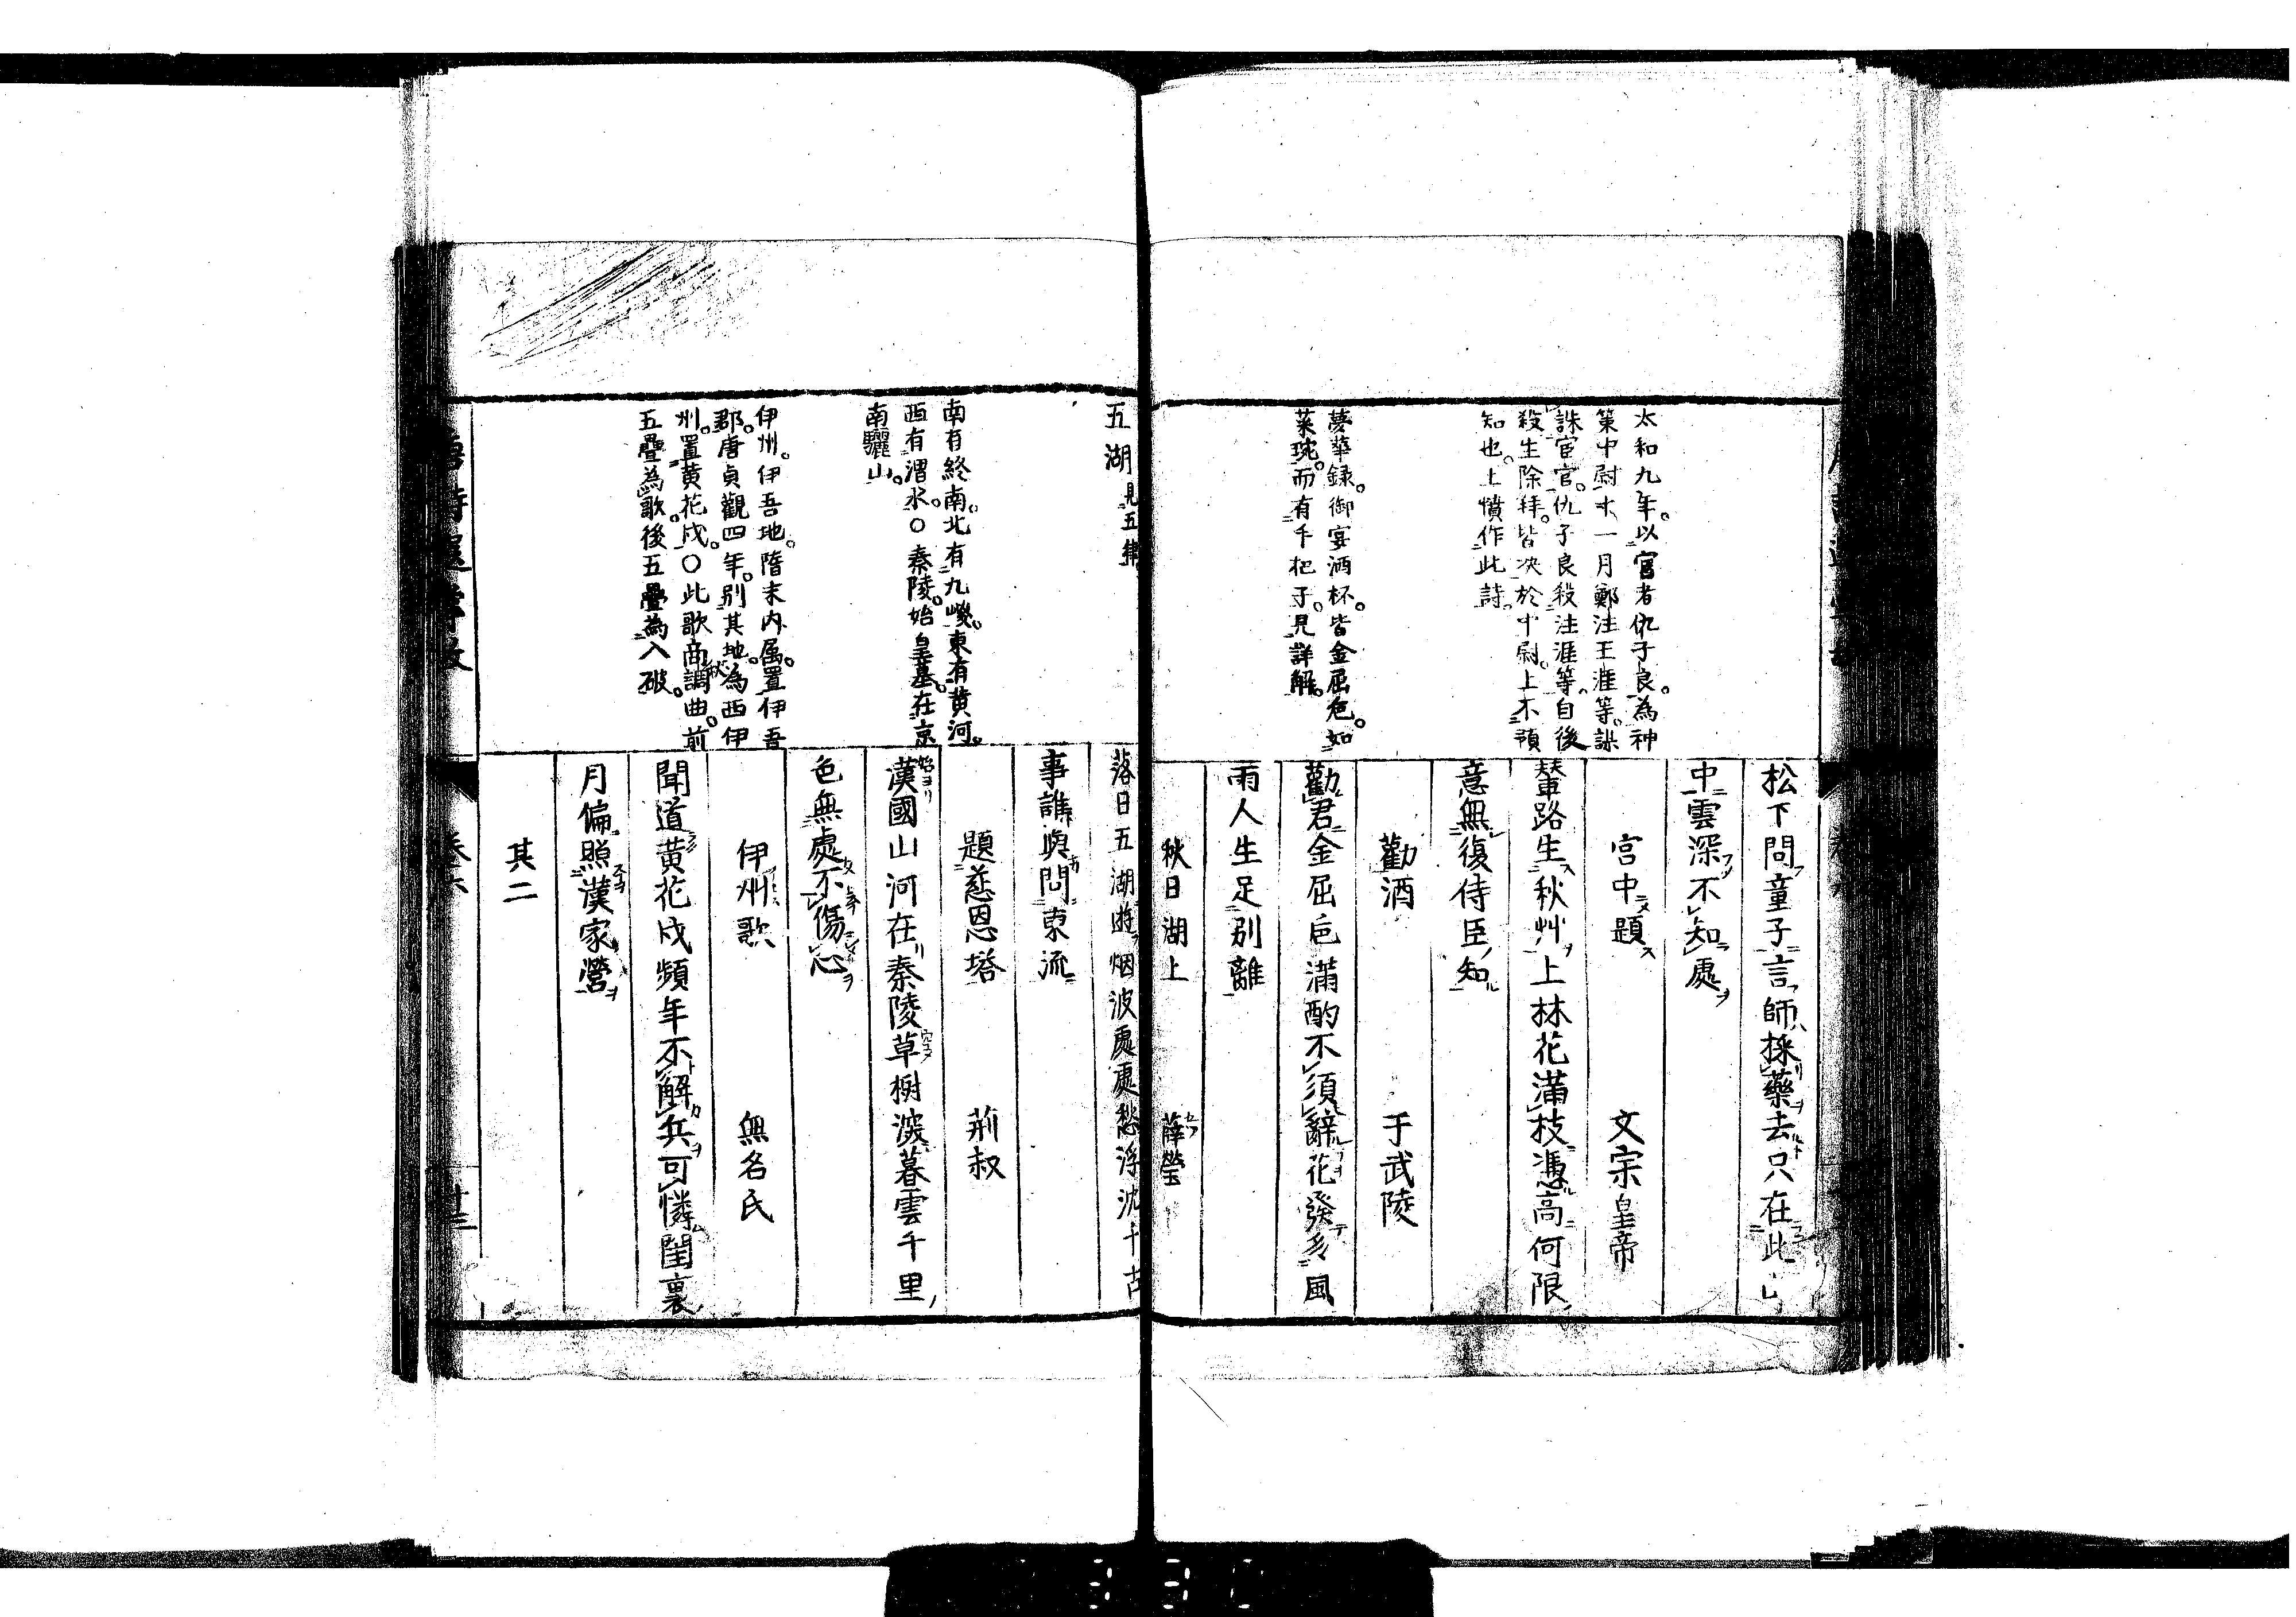 太和九年。以宦者仇子良。為神
策中尉十一月鄭注王涯等。誅
誅宦官。仇子良殺注涯等。自後
殺生除拜。皆决於中尉。上不預
知也。上憤作此詩。
夢華録。御宴酒杯。皆金屈卮。如
菜琬。而有手把子。見詳解。
松下問童子言師採藥去只在此山
中雲深不知處
宮中題 文宗皇帝
輦路生秋艸上林花滿枝憑高何限
意無復侍臣知
勸酒 于武陵
勸君金屈卮滿酌不須辭花發多風
雨人生足別離
秋日湖上 薛瑩
五湖見五律
南有終南。北有九嵕。東有黄河。
西有渭水。○秦陵。始皇墓。在京
南驪山。
伊州。伊吾地。隋末内属。置伊吾
郡。唐貞觀四年。別其地。為西伊
州。置黄花戍。○此歌商調曲。前
五疊為歌。後五疊為入破。
落日五湖遊烟波處處愁浮沈千古
事誰與問東流
題慈恩塔 荊叔
漢國山河在秦陵草樹深暮雲千里
色無處不傷心
伊州歌 無名氏
聞道黄花戍頻年不解兵可憐閨裏
月偏照漢家營
其二